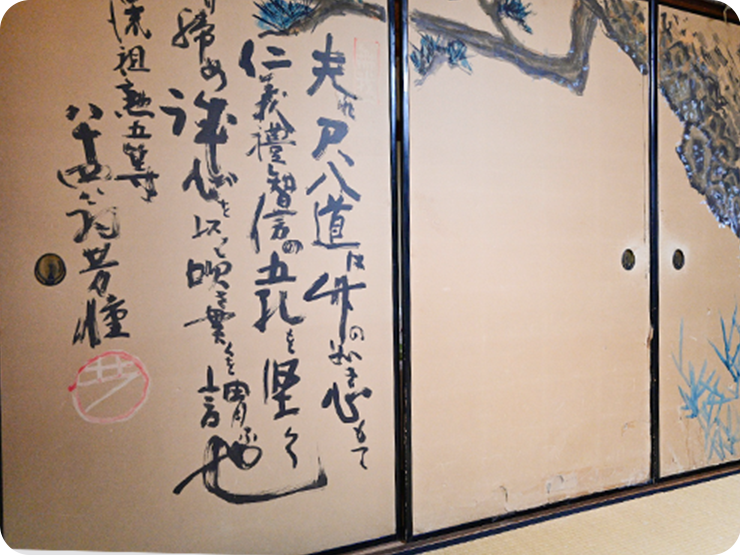 夫れ尺八道は竹の如き心もて
仁義禮智信の五孔を堅く
締め誠心を以て吹き奏くを謂ふ也
流祖勲五等
八十四翁芳憧